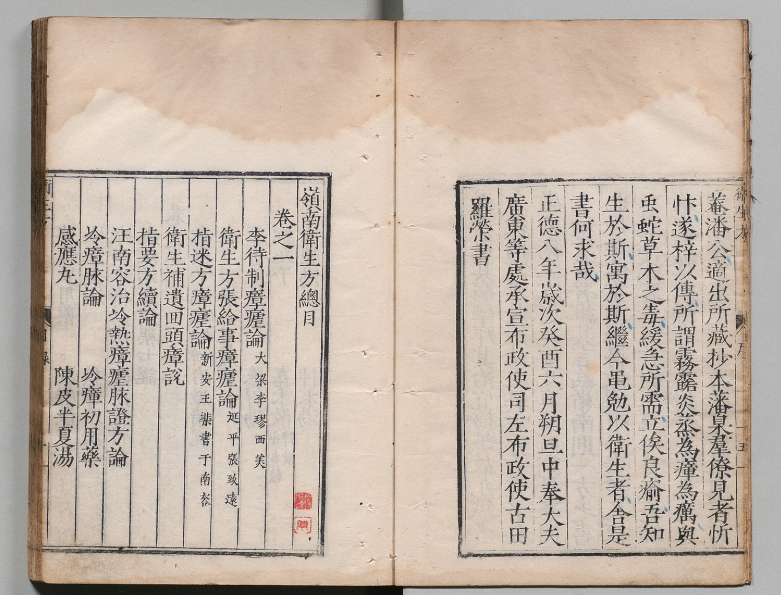 菴潘公適出所藏抄本藩臬羣僚見者忻
忭遂梓以傳所謂霧露炎蒸為瘴為癘與
䖝蛇草木之毒緩急所需立俟良瘉吾知
生於斯寓於斯繼今黽勉以衛生者舍是
書何求哉
正德八年歲次癸酉六月朔旦中奉大夫
廣東等處承宣布政使司左布政使古田
羅榮書
嶺南衛生方總目
卷之一
李待制瘴瘧論 大梁李璆西美
衛生方張給事瘴瘧論 延平張致遠
指迷方瘴瘧論 新安王棐書于南容
衛生補遺囬頭瘴說
指要方續論
汪南容治冷熱瘴瘧脉證方論
冷瘴脉論 冷瘴初用藥
感應丸 陳皮半夏湯